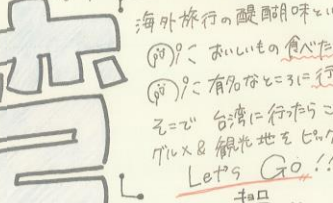 海外旅行の醍醐味とい
おいしいもの食べた
有名なところに行
そこで 台湾に行ったらこ
グルメ&観光地をピッ
Let's Go!!